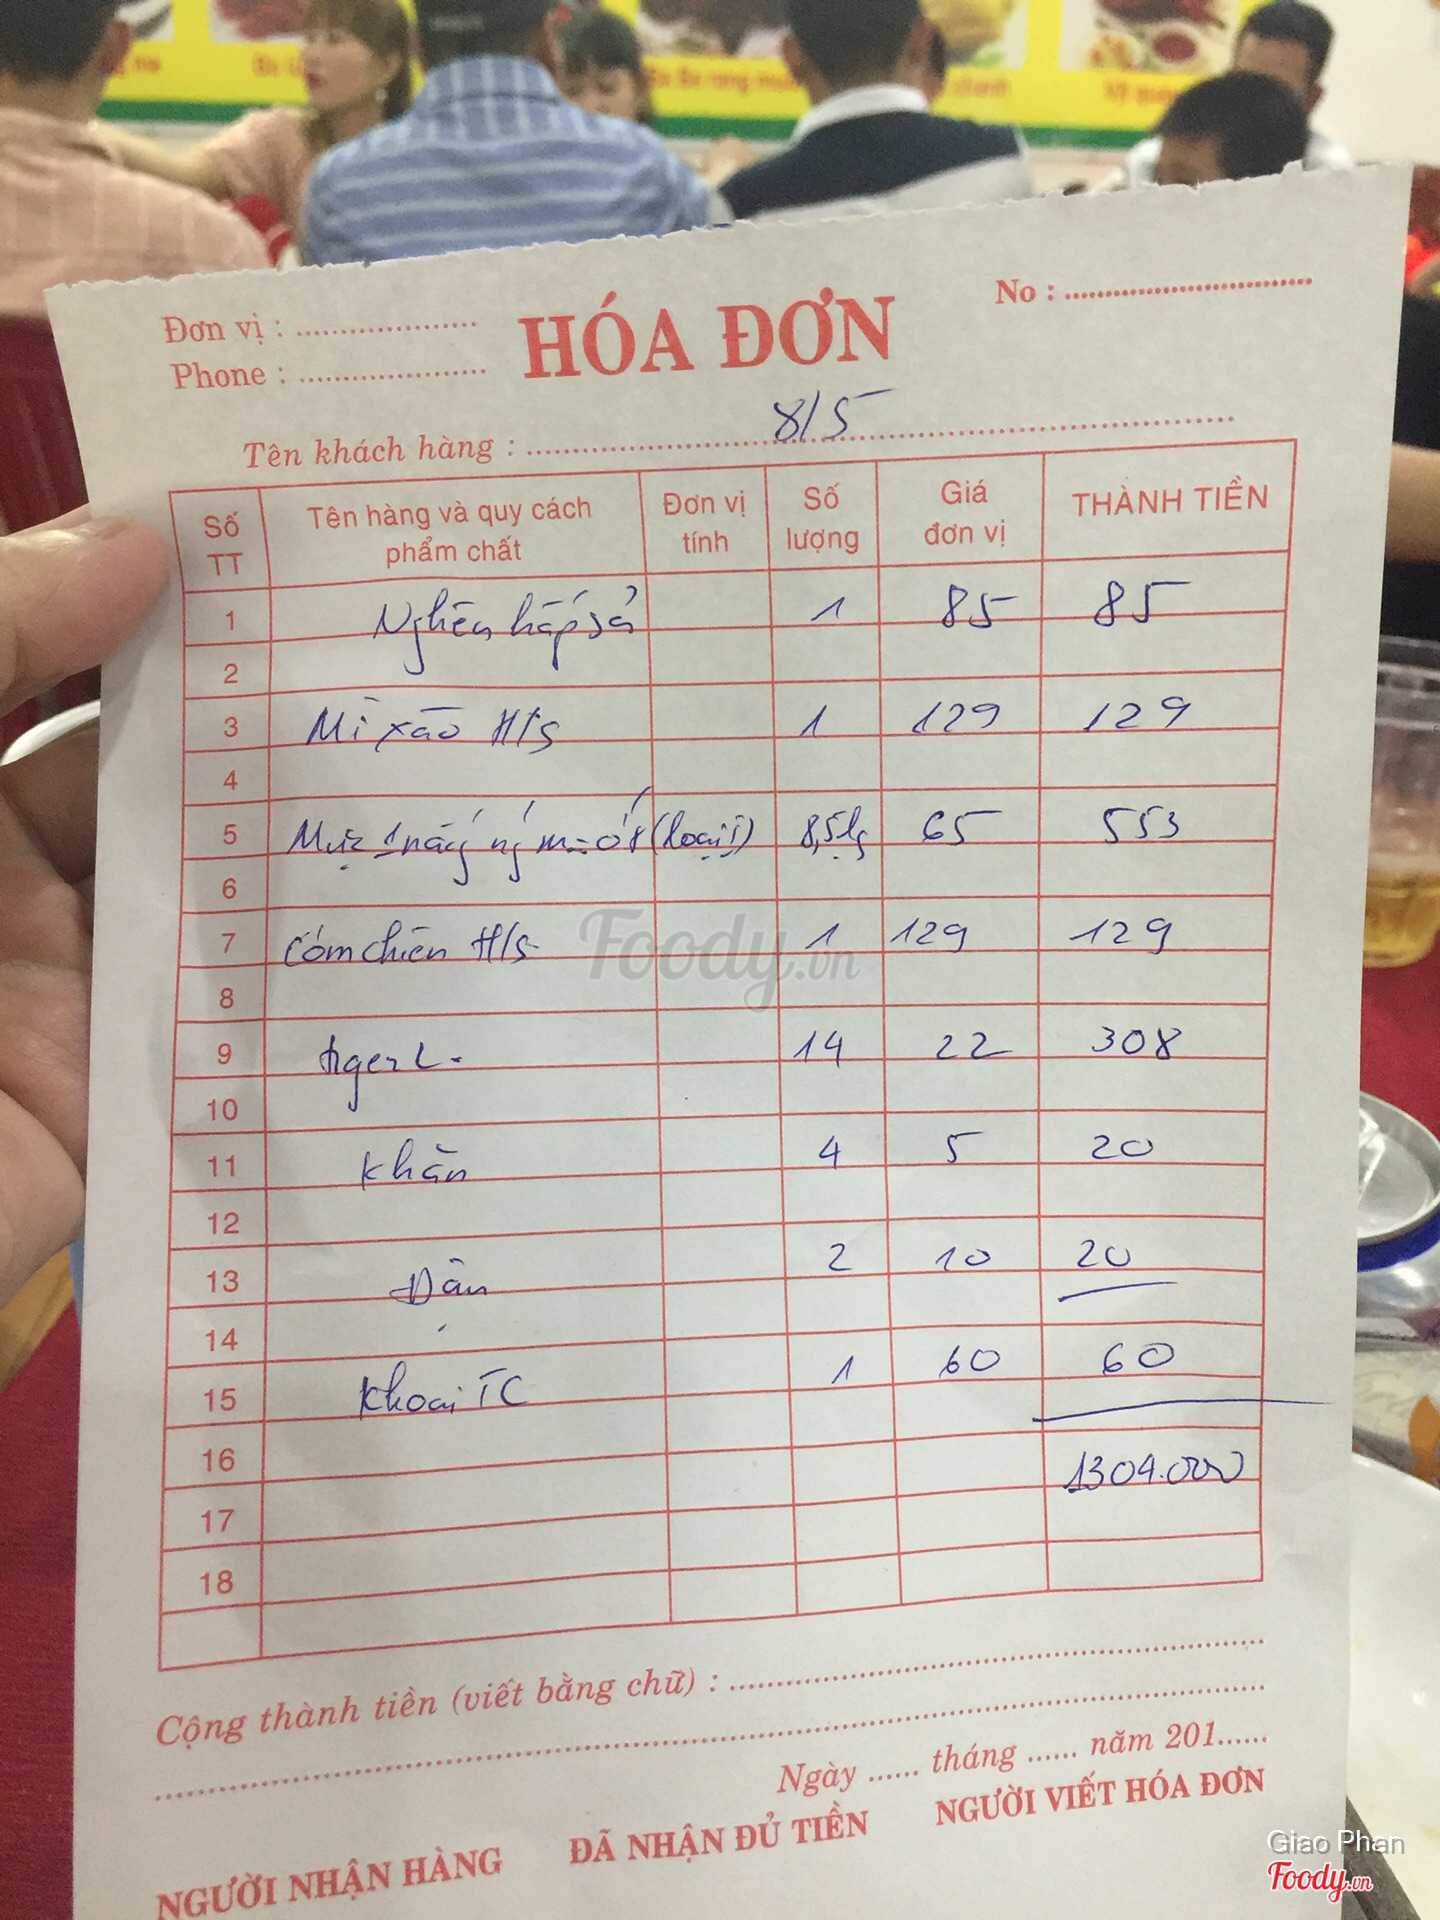 Đơn vị :
Phone :
HÓA ĐƠN
No :
Tên khách hàng : 8/5
Số TT Tên hàng và quy cách phẩm chất Đơn vị tính Số lượng Giá đơn vị THÀNH TIỀN
1 Nghêu hấp sả 1 85 85
2
3 Mì xào H/S 1 129 129
4
5 Mực nướng muối ớt (loại 1) 8,5lg 65 553
6
7 Cơm chiên H/S 1 129 129
8
9 tiger L. 14 22 308
10
11 Khăn 4 5 20
12
13 Đậu 2 10 20
14
15 Khoai TC 1 60 60
16 1304.000
17
18
Cộng thành tiền (viết bằng chữ) :
Ngày ...... tháng ...... năm 201......
NGƯỜI NHẬN HÀNG ĐÃ NHẬN ĐỦ TIỀN NGƯỜI VIẾT HÓA ĐƠN
Foody.vn
Giao Phan
Foody.vn